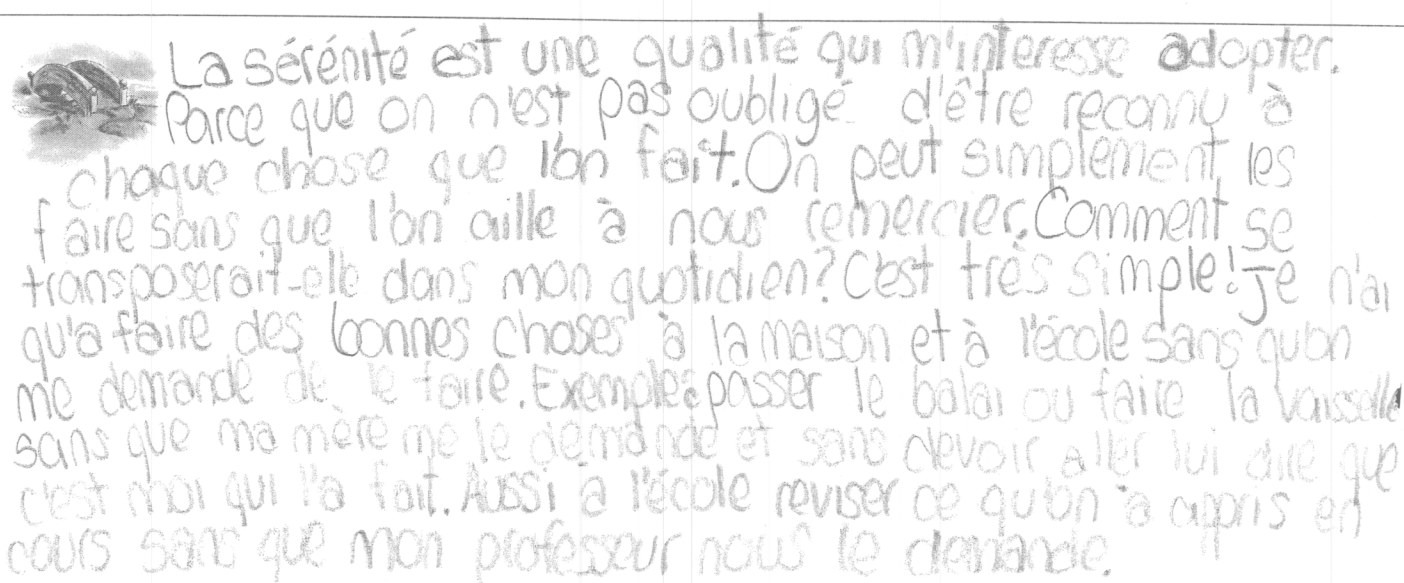 La sérénité est une qualité qui m'interesse adopter.
Parce que on n'est pas oubligé d'être reconnu à
chaque chose que l'on fait. On peut simplement les
faire sans que l'on aille à nous remercier. Comment se
transposerait-elle dans mon quotidien? C'est très simple! Je n'ai
qu'a faire des bonnes choses à la maison et à l'école sans qu'on
me demande de le faire. Exemple: passer le balai ou faire la vaisselle
sans que ma mère me le demande et sans devoir aller lui dire que
c'est moi qui l'a fait. Aussi à l'école reviser ce qu'on à appris en
cours sans que mon professeur nous le demande.